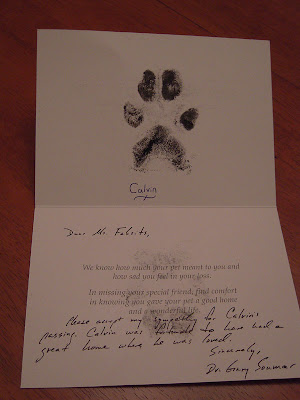 Calvin
Dear Mr.
We know how much your pet meant to you and
how sad you feel in your loss.
In missing your special friend, find comfort
in knowing you gave your pet a good home
and a wonderful life.
Please accept my sympathy for Calvin's
passing. Calvin was fortunate to have had a
great home where he was loved.
Sincerely,
Dr. Gary